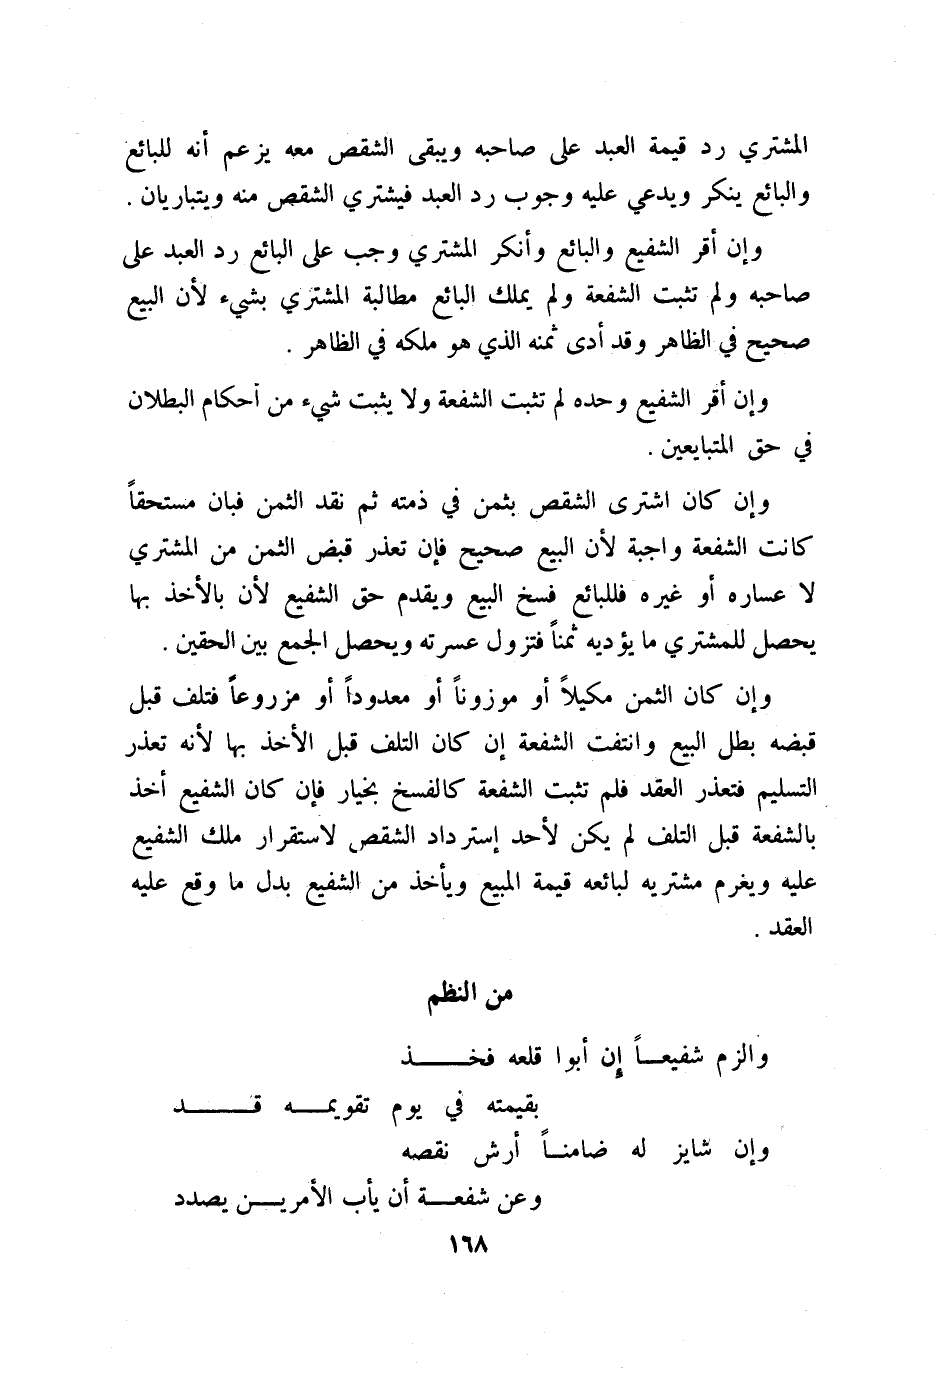 المشتري رد قيمة العبد على صاحبه ويبقى الشقص معه يزعم أنه للبائع
والبائع ينكر ويدعي عليه وجوب رد العبد فيشتري الشقص منه ويتباريان .
وإن أقر الشفيع والبائع وأنكر المشتري وجب على البائع رد العبد على
صاحبه ولم تثبت الشفعة ولم يملك البائع مطالبة المشتري بشيء لأن البيع
صحيح في الظاهر وقد أدى ثمنه الذي هو ملكه في الظاهر .
وإن أقر الشفيع وحده لم تثبت الشفعة ولا يثبت شيء من أحكام البطلان
في حق المتبايعين .
وإن كان اشترى الشقص بثمن في ذمته ثم نقد الثمن فبان مستحقاً
كانت الشفعة واجبة لأن البيع صحيح فإن تعذر قبض الثمن من المشتري
لا عساره أو غيره فللبائع فسخ البيع ويقدم حق الشفيع لأن بالأخذ بها
يحصل للمشتري ما يؤديه ثمناً فتزول عسرته ويحصل الجمع بين الحقين .
وإن كان الثمن مكيلاً أو موزوناً أو معدوداً أو مزروعاً فتلف قبل
قبضه بطل البيع وانتفت الشفعة إن كان التلف قبل الأخذ بها لأنه تعذر
التسليم فتعذر العقد فلم تثبت الشفعة كالفسخ بخيار فإن كان الشفيع أخذ
بالشفعة قبل التلف لم يكن لأحد إسترداد الشقص لاستقرار ملك الشفيع
عليه ويغرم مشتريه لبائعه قيمة المبيع ويأخذ من الشفيع بدل ما وقع عليه
العقد .
من النظم
والزم شفيعـــاً إن أبوا قلعه فخـــــذ
بقيمته في يوم تقويمـــه قـــــد
وإن شايز له ضامنـــاً أرش نقصه
وعن شفعـــة أن يأب الأمريـــن يصدد
١٦٨